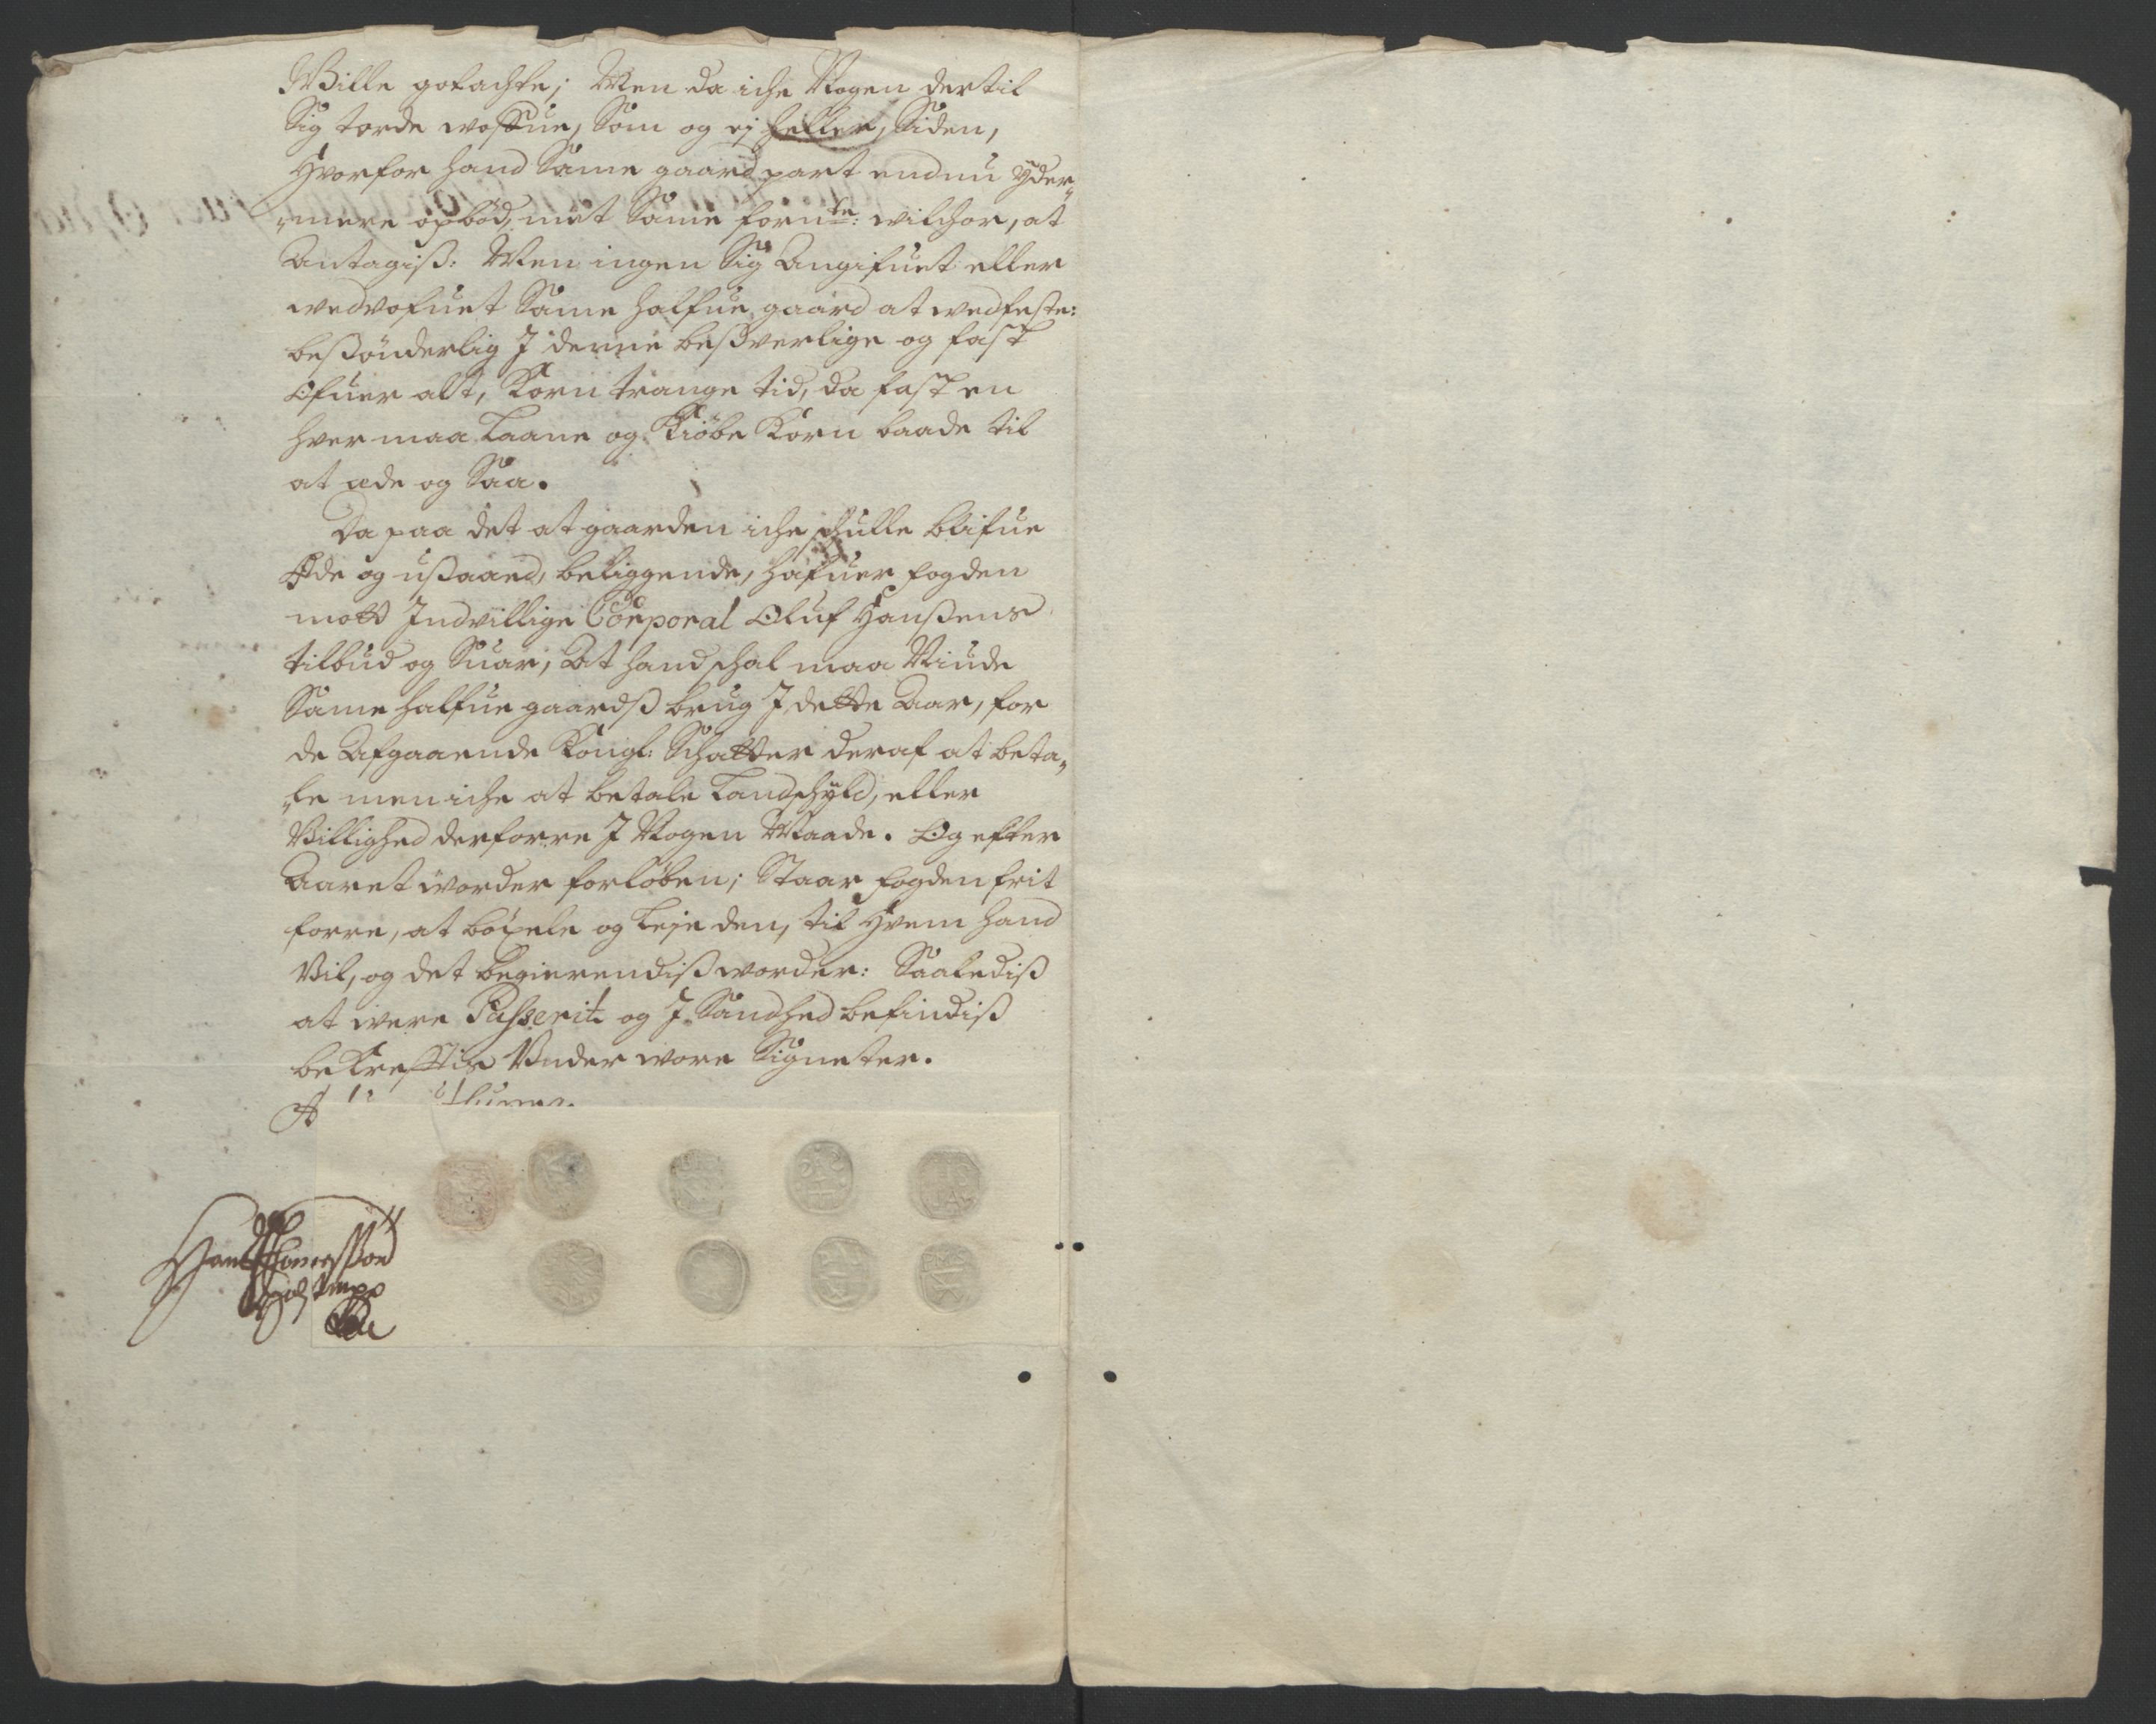 Wille gotachte; Men da iche Nogen dertil
Sig torde woffue, Som og ej heller, Siden,
Hvorfor hand Same gaard part endnu yder„
„mere opbød, met Same fornte: wilchor, at
Antagiß: Men ingen Sig Angifuet eller
wedvofuet Same halfue gaard at wedfeste:
beßønderlig J denne beßverlige og fast
Ofuer alt, Korn trange tid, da fast en
hver maa Laane og Kiøbe Korn baade til
at æde og Saa.
Da paa det at gaarden iche schulle blifue
Øde og ußaaed, beliggende, hafuer fogden
mott Indvillige Corporal Oluf Hanßens
tilbud og Suar, At hand schal maa Niude
Same halfue gaardß brug J dette Aar, for
de Afgaaende Kongl: Schatter deraf at beta„
„le men iche at betale Landschyld, eller
Villighed derforre J Nogen Maade. Og efter
Aaret worder forløben; Staar fogden frit
forre, at bøxele og Leje den, til Hvem hand
Vil, og det begierendiß worder: Saalediß
at were Passerit og J Sandhed befindiß
bekrefftis Vnder wore Signeter.